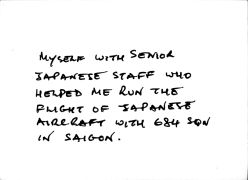 MYSELF WITH SENIOR
JAPANESE STAFF WHO
HELPED ME RUN THE
FLIGHT OF JAPANESE
AIRCRAFT WITH 684 SQN
IN SAIGON.